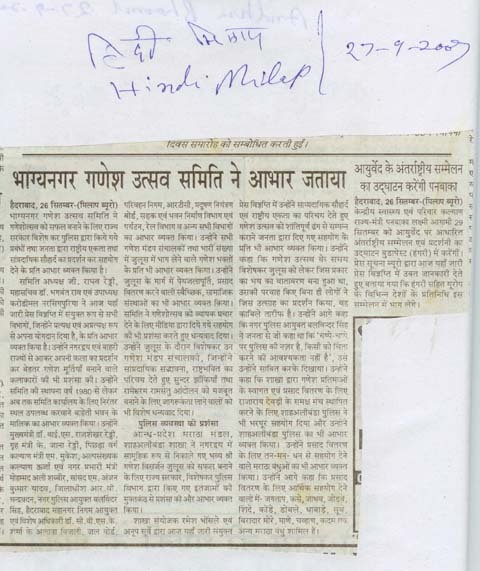 हिंदी मिलाप
Hindi Milap
27-9-2007
दिवस समारोह को सम्बोधित करती हुईं।
भाग्यनगर गणेश उत्सव समिति ने आभार जताया
हैदराबाद, 26 सितम्बर-(मिलाप ब्यूरो)
भाग्यनगर गणेश उत्सव समिति ने
गणेशोत्सव को सफल बनाने के लिए राज्य
सरकार विशेष कर पुलिस द्वारा किये गये
प्रबंधों तथा जनता द्वारा राष्ट्रीय एकता तथा
सांप्रदायिक सौहार्द का प्रदर्शन कर सहयोग
देने के प्रति आभार व्यक्त किया है।
समिति अध्यक्ष जी. राघव रेड्डी,
महासचिव डॉ. भगवंत राव एवं उपाध्यक्ष
करोडीमल नरसिंगपुरिया ने आज यहाँ
जारी प्रेस विज्ञप्ति में संयुक्त रूप से सभी
विभागों, जिन्होंने प्रत्यक्ष एवं अप्रत्यक्ष रूप
से अपना योगदान दिया है, के प्रति आभार
व्यक्त किया है। उन्होंने नगरद्वय एवं बाहरी
राज्यों से आकर अपनी कला का प्रदर्शन
कर बेहतर गणेश मूर्तियाँ बनाने वाले
कलाकारों की भी प्रशंसा की। उन्होंने
समिति की स्थापना वर्ष 1980 से लेकर
अब तक समिति कार्यालय के लिए निरंतर
स्थल उपलब्ध करवाने बाहेती भवन के
मालिक का आभार व्यक्त किया है। उन्होंने
मुख्यमंत्री डॉ. वाई.एस. राजशेखर रेड्डी,
गृह मंत्री के. जाना रेड्डी, पिछड़ा वर्ग
कल्याण मंत्री एम. मुकेश, अल्पसंख्यक
कल्याण ऊर्जा एवं नगर प्रभारी मंत्री
मोहम्मद अली शब्बीर, सांसद एम. अंजन
कुमार यादव, जिलाधीश आर.वी.
चन्द्रवदन, नगर पुलिस आयुक्त बलविंदर
सिंह, हैदराबाद महानगर निगम आयुक्त
एवं विशेष अधिकारी डॉ. सी.वी.एस.के.
शर्मा के अलावा बिजली, जल बोर्ड,
परिवहन निगम, आरटीसी, प्रदूषण नियंत्रण
बोर्ड, सड़क एवं भवन निर्माण विभाग एवं
पर्यटन, रेल विभाग व अन्य सभी विभागों
का आभार व्यक्त किया। उन्होंने सभी
गणेश मंडप संचालकों तथा भारी संख्या
में जुलूस में भाग लेने वाले गणेश भक्तों
के प्रति भी आभार व्यक्त किया। उन्होंने
जुलूस के मार्ग में पेयजलापूर्ति, प्रसाद
वितरण करने वाली स्वैच्छिक, सामाजिक
संस्थाओं का भी आभार व्यक्त किया।
समिति ने गणेशोत्सव को व्यापक प्रचार
देने के लिए मीडिया द्वारा दिये गये सहयोग
की भी प्रशंसा करते हुए धन्यवाद दिया।
उन्होंने जुलूस के दौरान विशेषकर उन
गणेश मंडप संचालकों, जिन्होंने
सांप्रदायिक सद्भावना, राष्ट्रभक्ति का
परिचय देते हुए सुन्दर झाँकियाँ तथा
रामसेतु रामरक्षा आंदोलन को मजबूत
बनाने के लिए जागरुकता लाने वालों को
भी विशेष धन्यवाद दिया।
पुलिस व्यवस्था की प्रशंसा
आन्ध्र-प्रदेश मराठा मंडल,
शाहअलीबंडा शाखा ने नगरद्वय में
सामूहिक रूप से निकाले गए भव्य श्री
गणेश विसर्जन जुलूस को सफल बनाने
के लिए राज्य सरकार, विशेषकर पुलिस
विभाग द्वारा किए गए इंतजामों की
मुक्तकंठ से प्रशंसा की और आभार व्यक्त
किया।
शाखा संयोजक रमेश भोंसले एवं
अनूप सूर्वे द्वारा आज यहाँ जारी संयुक्त
प्रेस विज्ञप्ति में उन्होंने साम्प्रदायिक सौहार्द
एवं राष्ट्रीय एकता का परिचय देते हुए
गणेश उत्सव को शांतिपूर्ण ढंग से सम्पन्न
कराने जनता द्वारा दिए गए सहयोग के
प्रति भी आभार व्यक्त किया। उन्होंने
कहा कि गणेश उत्सव के समय
विशेषकर जुलूस को लेकर जिस प्रकार
का भय का वातावरण बना हुआ था,
उसकी परवाह किए बिना ही लोगों ने
जिस उत्साह का प्रदर्शन किया, वह
काबिले तारीफ है। उन्होंने आगे कहा
कि नगर पुलिस आयुक्त बलविन्दर सिंह
ने जनता से जो कहा था कि 'चप्पे-चप्पे
पर पुलिस की नज़र है, किसी को चिंता
करने की आवश्यकता नहीं है', उसे
उन्होंने साबित करके दिखाया। उन्होंने
कहा कि शाखा द्वारा गणेश प्रतिमाओं
के स्वागत एवं प्रसाद वितरण के लिए
राजाराय देवड़ी के समक्ष मंच स्थापित
करने के लिए शाहअलीबंडा पुलिस ने
भी भरपूर सहयोग दिया और उन्होंने
शाहअलीबंडा पुलिस का भी आभार
व्यक्त किया। उन्होंने प्रसाद वितरण
के लिए तन-मन- धन से सहयोग देने
वाले मराठा बंधुओं का भी आभार व्यक्त
किया। उन्होंने आगे कहा कि प्रसाद
वितरण के लिए आर्थिक सहयोग देने
वालों में- जगताप, कसे, जाधव, जोंधव,
शिंदे, कोंडे, डोबले, धावाडे, सूब,
बिरादार मोरे, माने, चव्हाण, कदम तथा
अन्य मराठा बंधु शामिल हैं।
आयुर्वेद के अंतर्राष्ट्रीय सम्मेलन
का उद्घाटन करेंगी पनबाका
हैदराबाद, 26 सितम्बर-(मिलाप ब्यूरो)
केन्द्रीय स्वास्थ्य एवं परिवार कल्याण
राज्य-मंत्री पनबाका लक्ष्मी आगामी 29
सितम्बर को आयुर्वेद पर आधारित
अंतर्राष्ट्रीय सम्मेलन एवं प्रदर्शनी का
उद्घाटन बुडापेस्ट (हंगरी) में करेंगी।
प्रेस सूचना ब्यूरो द्वारा आज यहाँ जारी
प्रेस विज्ञप्ति में उक्त जानकारी देते
हुए बताया गया कि हंगरी सहित यूरोप
के विभिन्न देशों के प्रतिनिधि इस
सम्मेलन में भाग लेंगे।